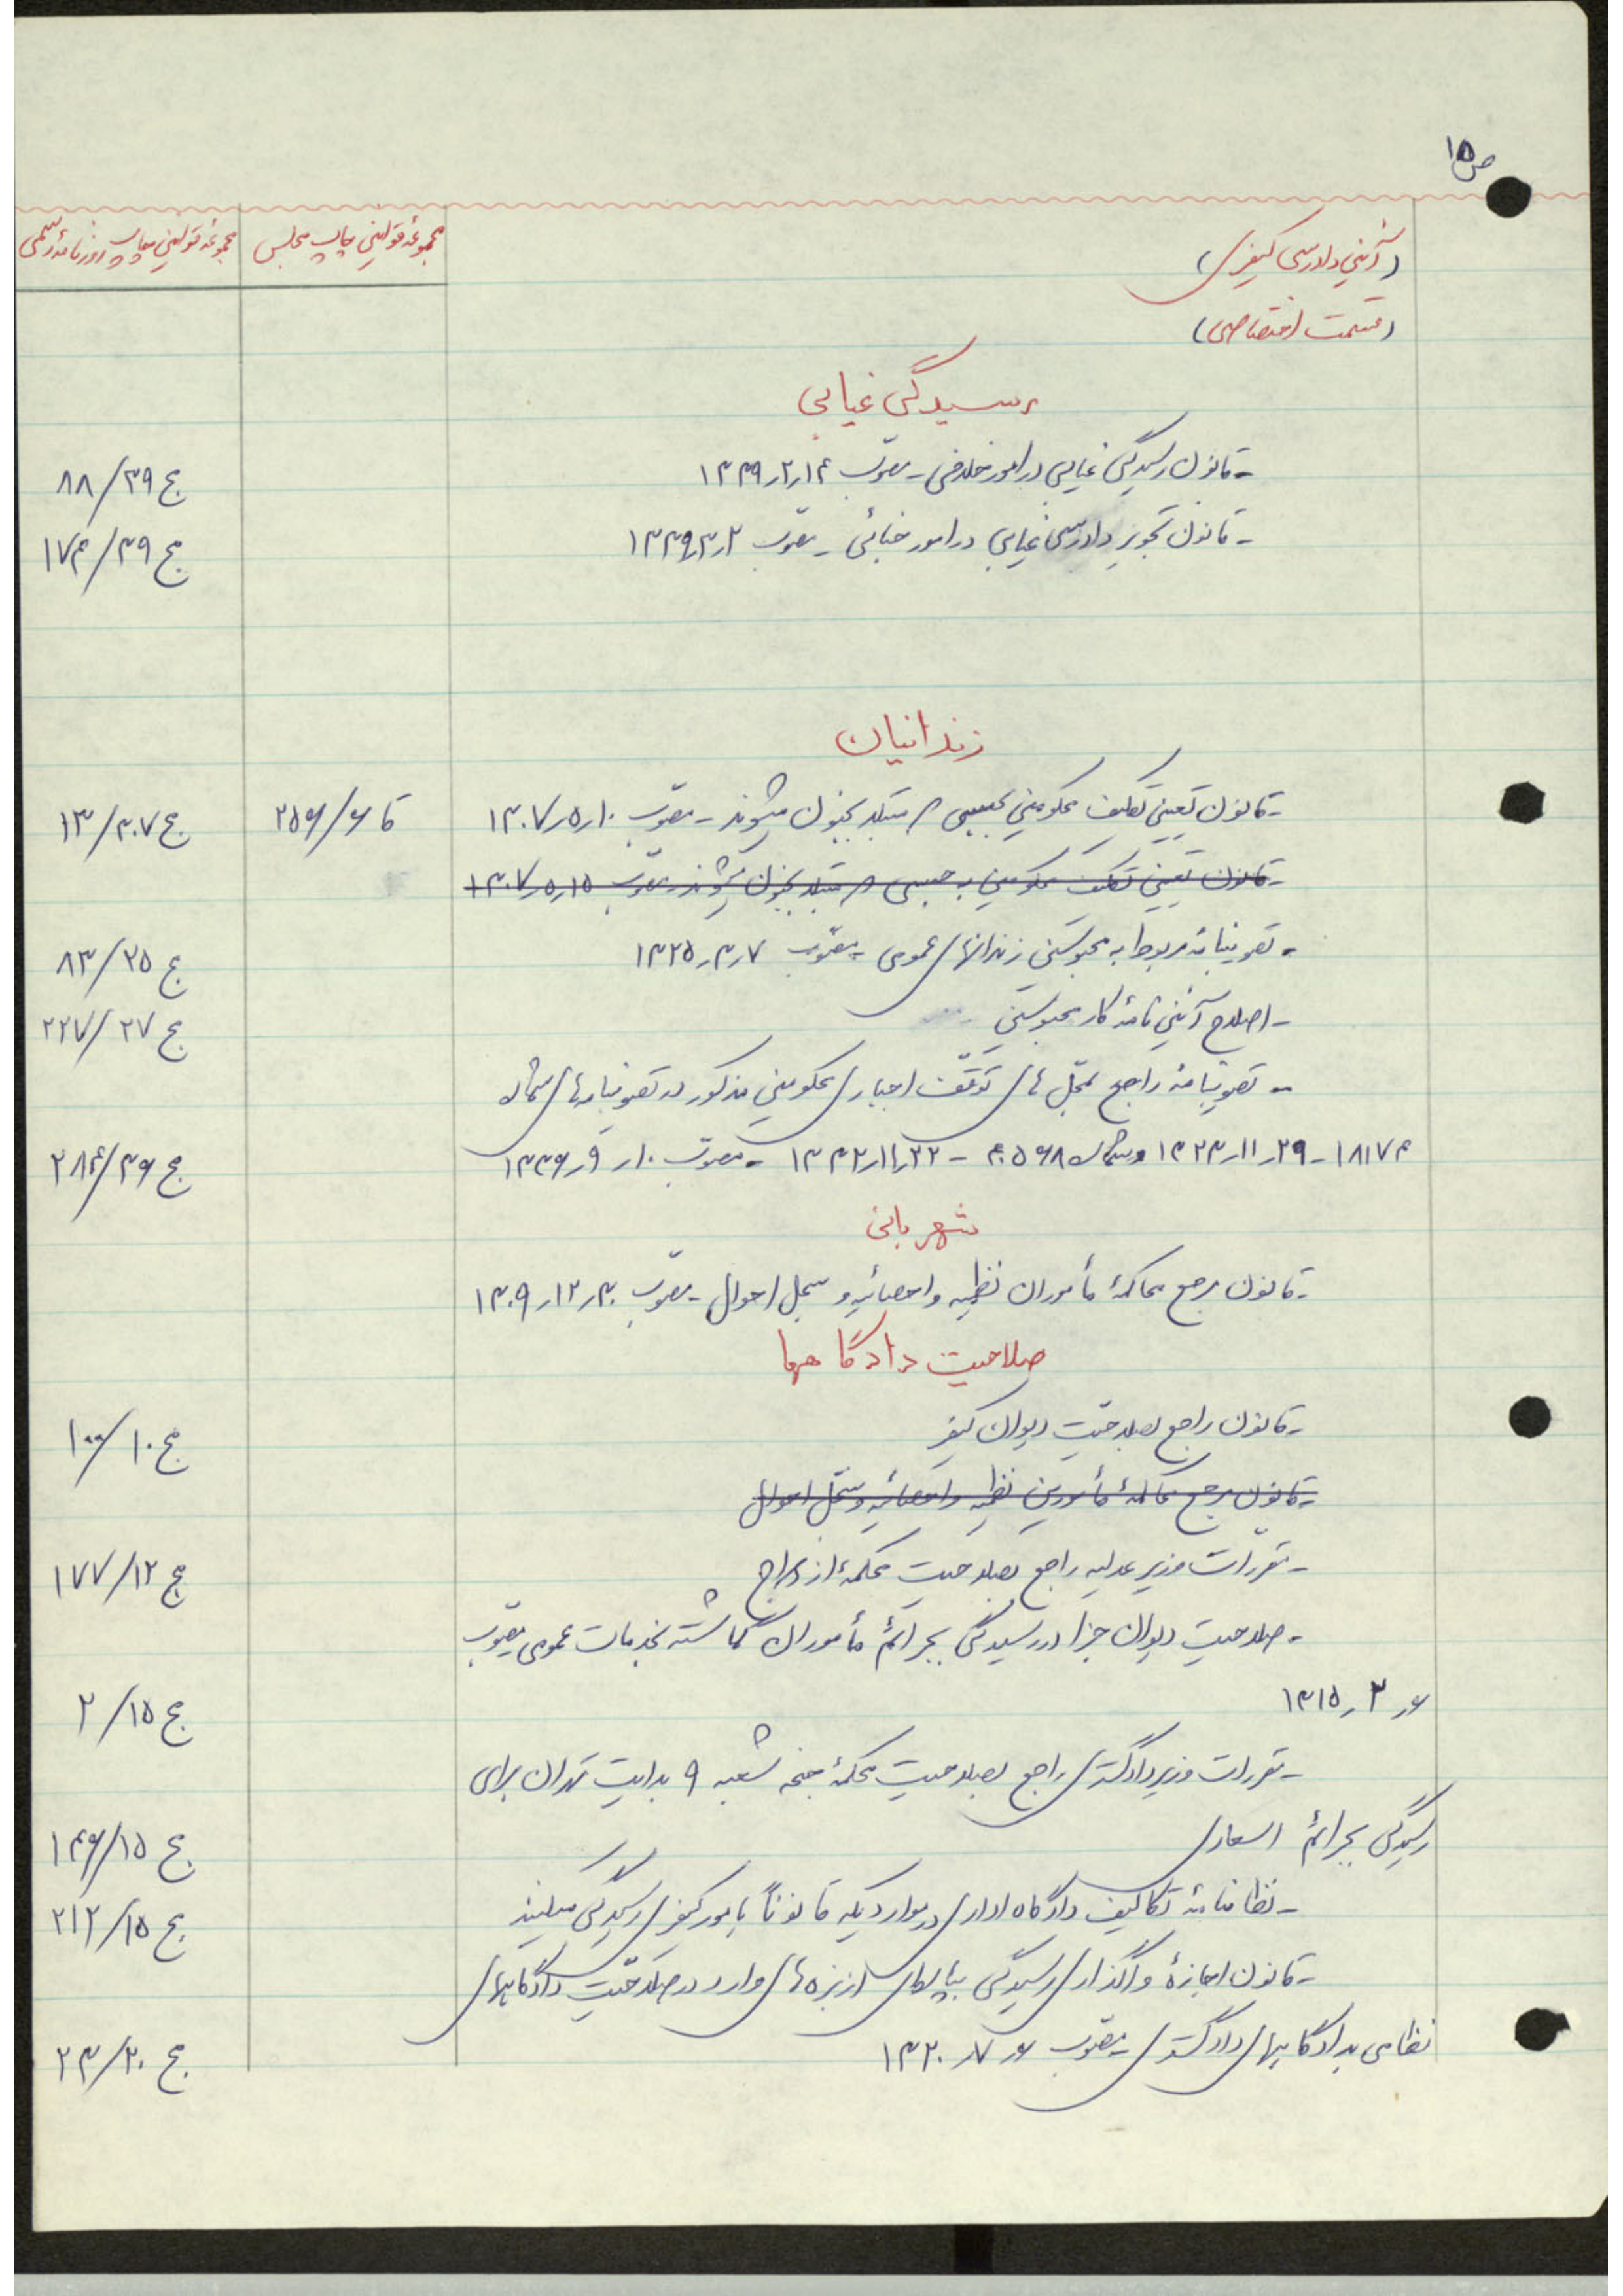 ص ۱۵
(آئین دادرسی کیفری)
مجموعه قوانین چاپ مجلس
مجموعه قوانین چاپ روزنامه رسمی
(قسمت اختصاصی)
رسیدگی غیابی
- قانون رسیدگی غیابی در امور خلافی - مصوّب ۱۴ر۲ر۱۳۳۹ ج ۳۹/۸۸
- قانون تجویز دادرسی غیابی در امور جنائی - مصوّب ۲ر۳ر۱۳۳۹ ج ۳۹/۱۷۴
زندانیان
- قانون تعیین تکلیف محکومین بحبسی که مبتلا بجنون میشوند - مصوّب ۱۰ر۵ر۱۳۰۷ قا ۶/۲۵۶ ج ۳۰۷/۱۳
- قانون تعیین تکلیف محکومین به حبسی که مبتلا بجنون میشوند - مصوّب ۱۵ر۵ر۱۳۰۷
- تصویبنامه مربوط به محبوسین زندانهای عمومی - مصوّب ۷ر۳ر۱۳۲۵ ج ۲۵/۸۳
- اصلاح آئین نامهٔ کار محبوسین ج ۲۷/۲۲۷
- تصویبنامه راجع بمحل های توقّف اجباری محکومین مذکور در تصویبنامه های شماره
۱۸۱۷۴ - ۲۹ر۱۱ر۱۳۲۳ و شماره ۴۰۵۶۸ - ۲۲ر۱۱ر۱۳۳۲ - مصوّب ۱۰ر۹ر۱۳۳۶ ج ۳۶/۲۸۴
شهربانی
- قانون مرجع محاکمهٔ مأموران نظمیه و احصائیه و سجل احوال - مصوّب ۳۰ر۱۲ر۱۳۰۹
صلاحیت دادگاهها
- قانون راجع بصلاحیّت دیوان کیفر ج ۱۰/۱۰۰
- قانون مرجع محاکمهٔ مأمورین نظمیه و احصائیه و سجّل احوال
- مقررات وزیر عدلیه راجع بصلاحیت محکمهٔ ازدواج ج ۱۲/۱۷۷
- صلاحیت دیوان جزا در رسیدگی بجرائم مأموران گماشته بخدمات عمومی مصوّب
۶ر۲ر۱۳۱۵ ج ۱۵/۲
- مقررات وزیر دادگستری راجع بصلاحیت محکمهٔ جنحه شعبه ۹ بدایت تهران برای
رسیدگی بجرائم اسعاری ج ۱۵/۱۴۶
- نظامنامهٔ تکالیف دادگاه اداری در مواردیکه قانوناً بامور کیفری رسیدگی میکنند ج ۱۵/۲۱۲
- قانون اجازهٔ واگذاری رسیدگی بپاره ای از بزه های وارد در صلاحیّت دادگاههای
نظامی بدادگاههای دادگستری - مصوّب ۶ر۷ر۱۳۲۰ ج ۲۰/۲۳